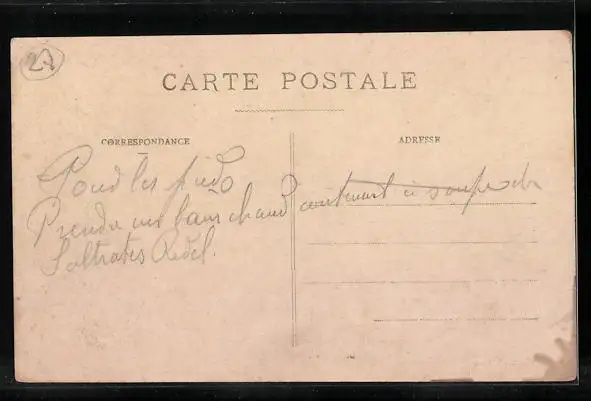 27
CARTE POSTALE
CORRESPONDANCE
ADRESSE
Pour les pieds
Prendre un bain chaud contenant
Saltrates Rodel.